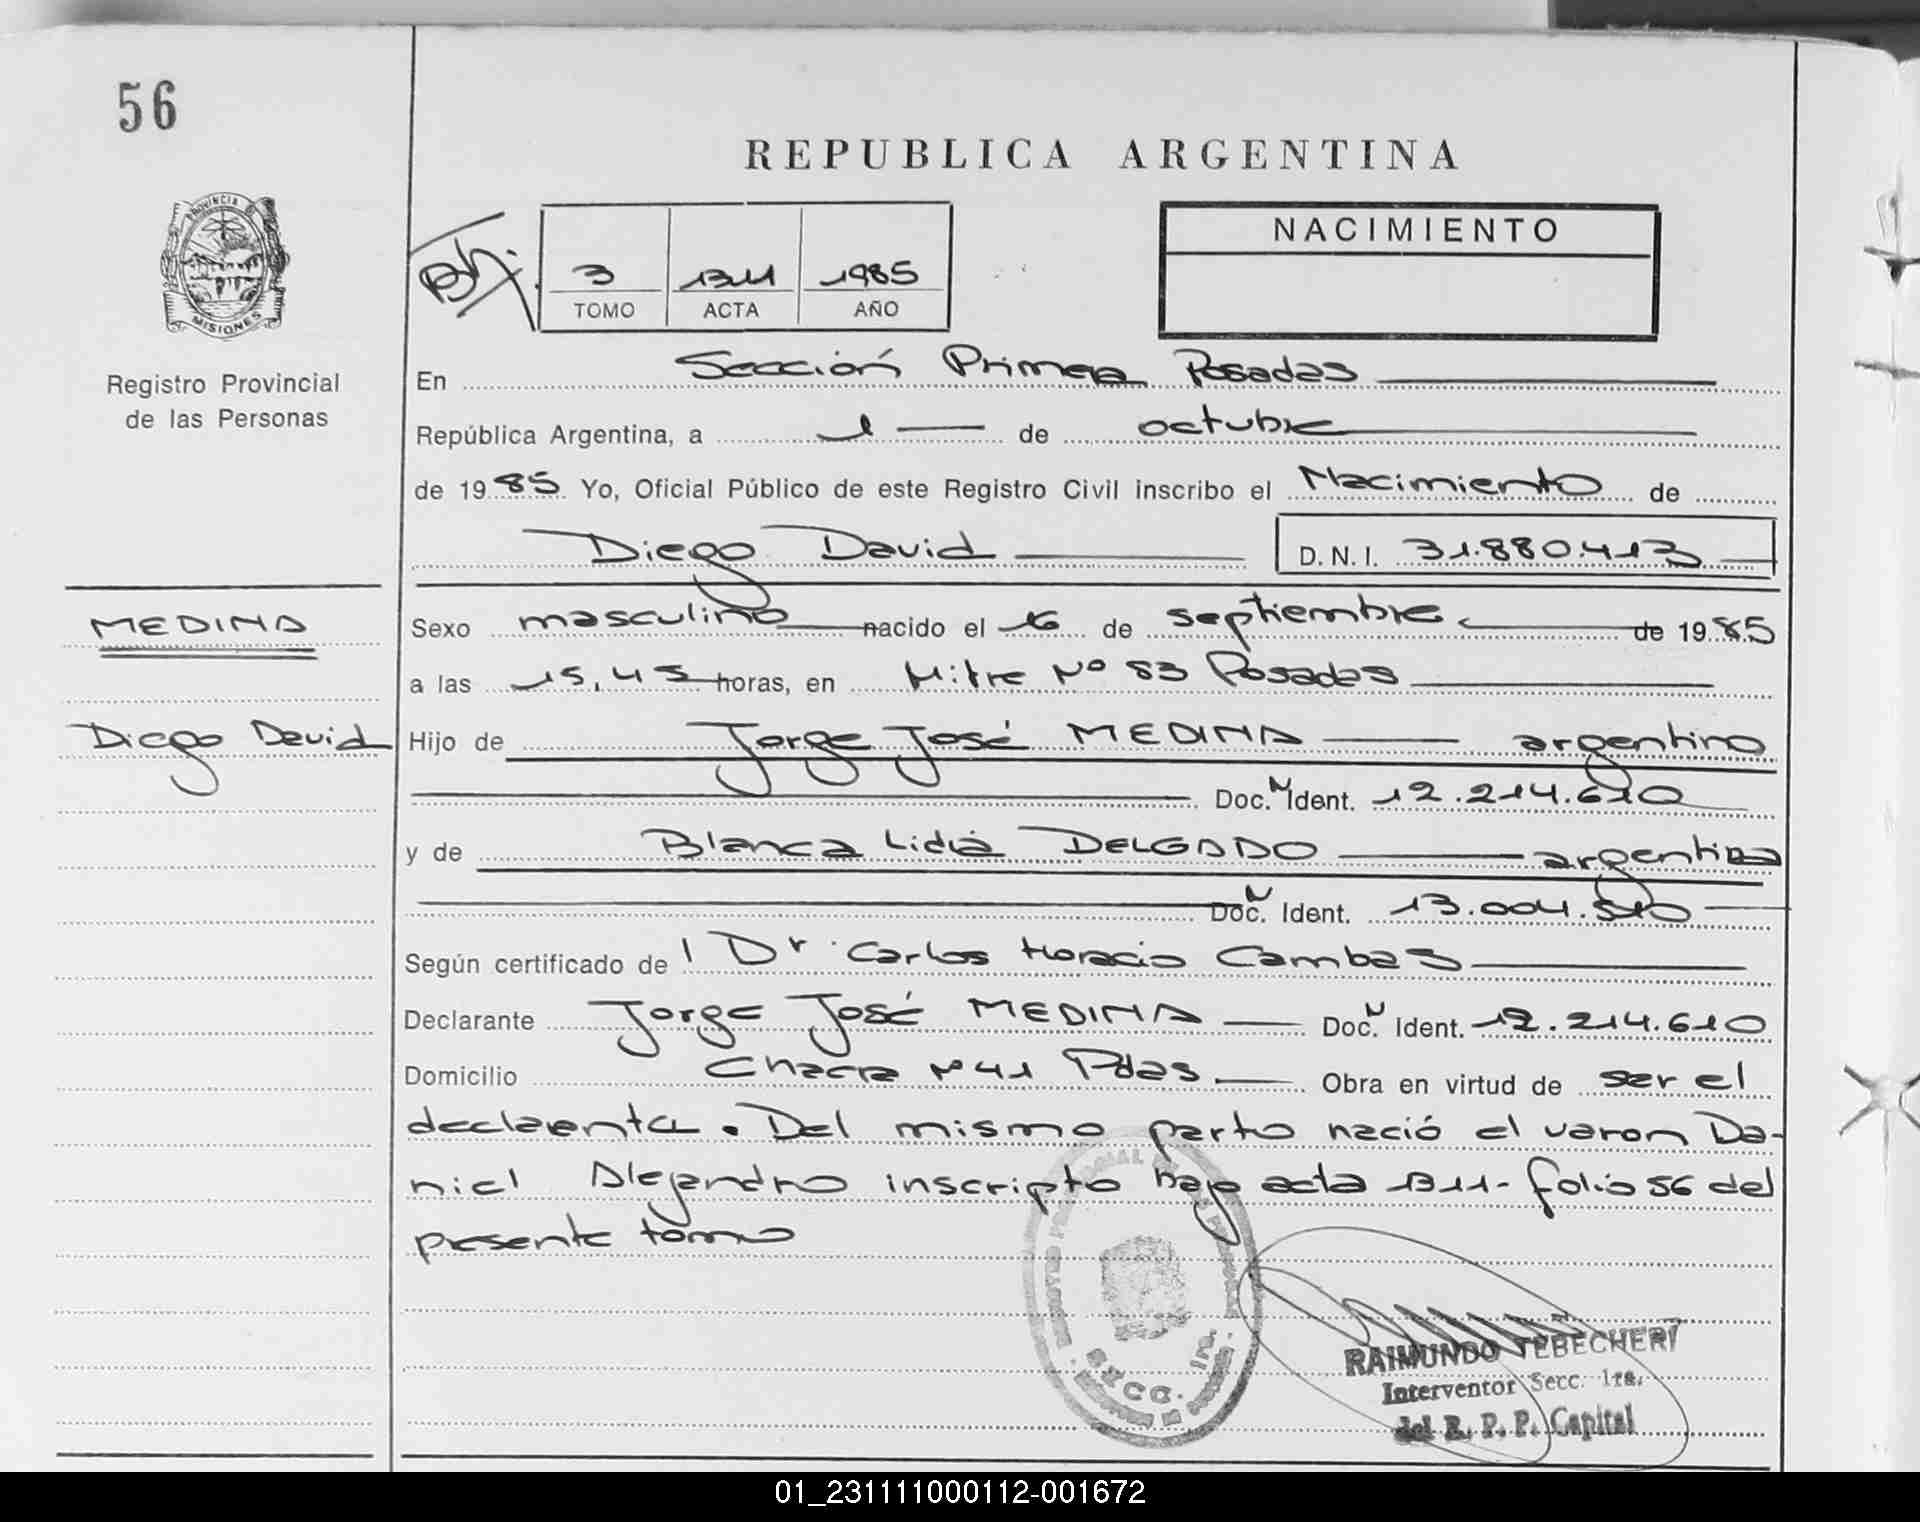 56
REPUBLICA ARGENTINA
PROVINCIA DE
MISIONES
Registro Provincial
de las Personas
3 1311 1985
TOMO ACTA AÑO
NACIMIENTO
En Sección Primera Posadas
República Argentina, a 1 de octubre
de 1985 Yo, Oficial Público de este Registro Civil inscribo el Nacimiento de
Diego David D.N.I. 31.880.413
MEDINA
Sexo masculino nacido el 16 de septiembre de 1985
a las 15,45 horas, en Mitre Nº 83 Posadas
Diego David
Hijo de Jorge José MEDINA argentino
Doc. N Ident. 12.214.610
y de Blanca Lidia DELGADO argentina
Doc. N Ident. 13.004.510
Según certificado de Dr. Carlos Horacio Cambas
Declarante Jorge José MEDINA Doc. N Ident. 12.214.610
Domicilio Chacra Nº 41 Pdas Obra en virtud de ser el
declarante. Del mismo parto nació el varon Da-
niel Alejandro inscripto bajo acta 1311- folio 56 del
presente tomo
SECC. 1ra.
RAIMUNDO TEBECHERI
Interventor Secc. 1ra.
del R. P. P. Capital
01_231111000112-001672